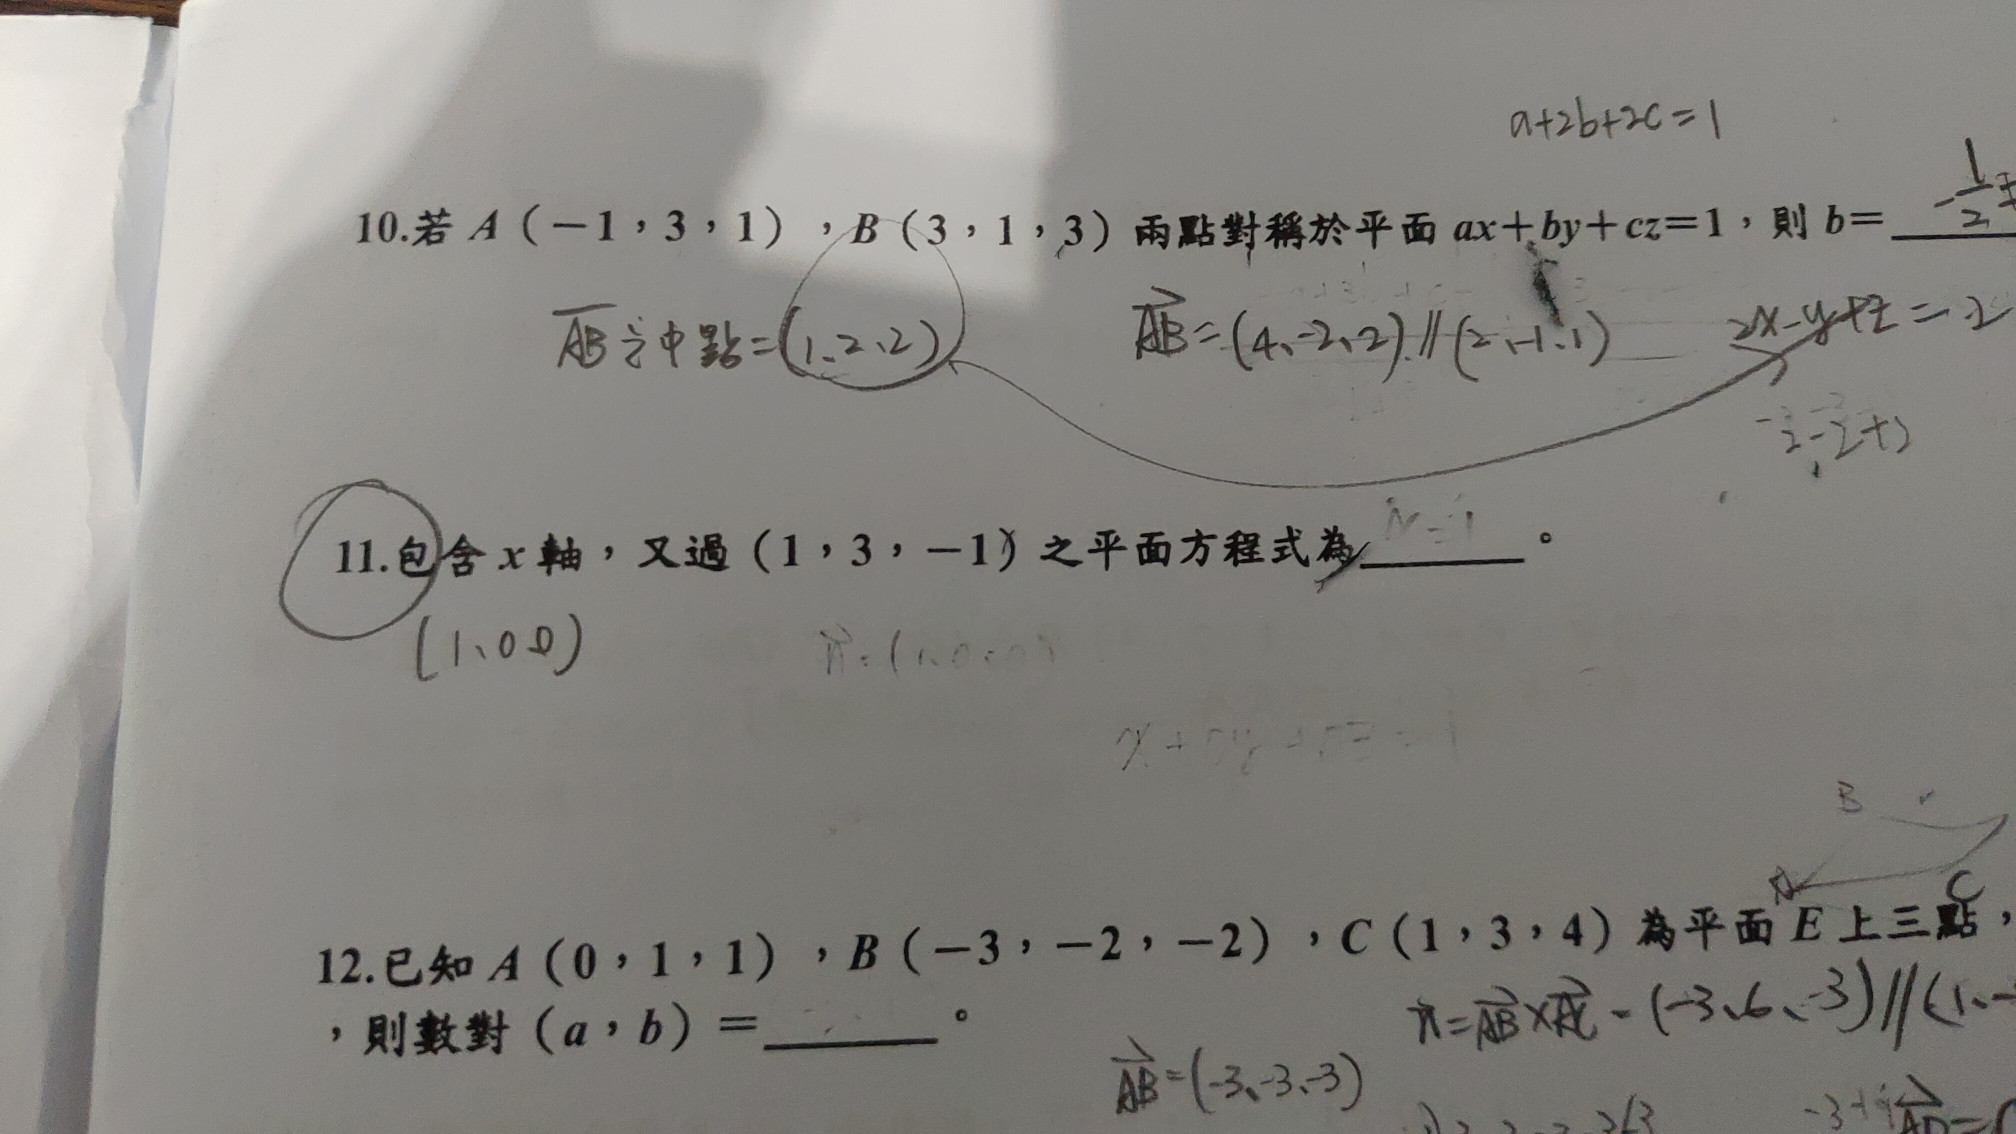 a+2b+2c=1
10.若 A（－1，3，1），B（3，1，3）兩點對稱於平面 ax＋by＋cz＝1，則 b＝ -1/2
AB之中點=(1、2、2)
AB=(4、-2、2)//(2、-1、1)
2x-y+z=2
11.包含 x 軸，又過（1，3，－1）之平面方程式為
(1、0 0)
B
A C
12.已知 A（0，1，1），B（－3，－2，－2），C（1，3，4）為平面 E 上三點，
，則數對（a，b）＝ 。
n=AB×AC=(-3、6、-3)//(1、-
AB=(-3、-3、-3)